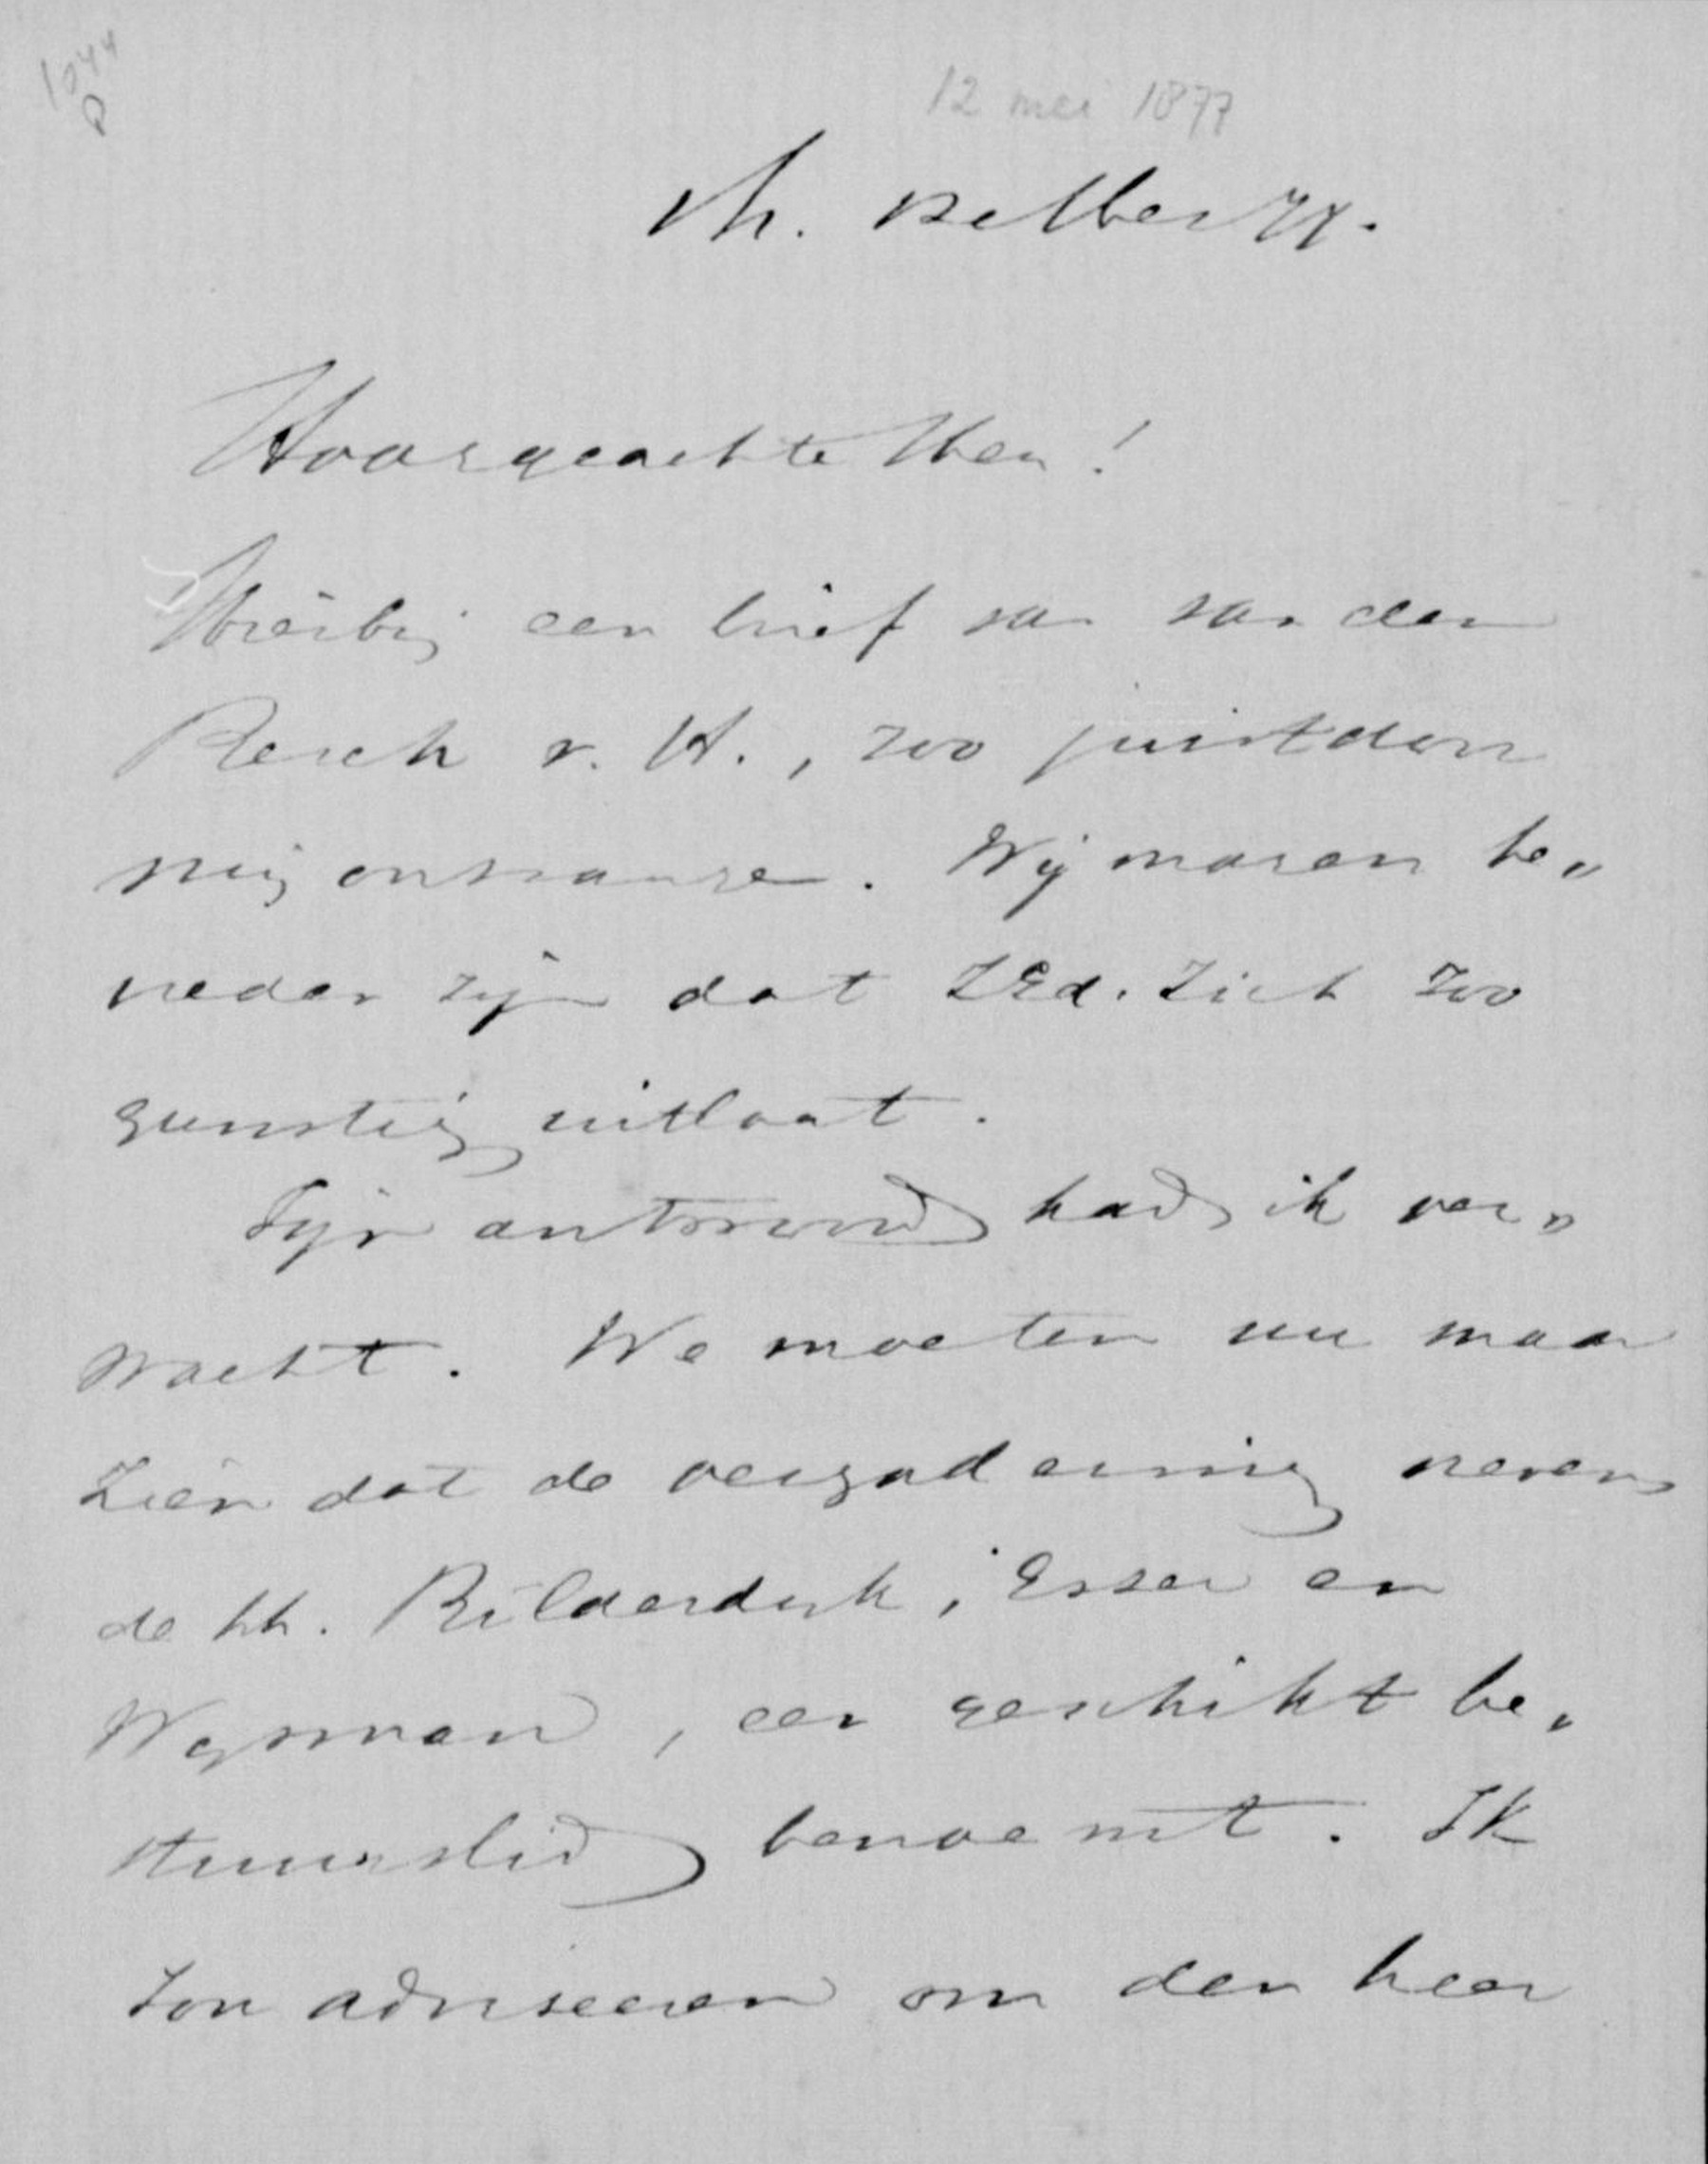 1044
12 mei 1877
Hooggeachte Heer!
Hierbij een brief van van den
Besch v. H., zoo juist door
mij ontvangen. Wij mogen te„
vreden zijn dat ZEd. zich zoo
gunstig uitlaat.
Zijn antwoord had ik ver„
wacht. We moeten nu maar
zien dat de vergadering nevens
de hh. Bilderdijk, Esser en
Wijsman, een geschikt be„
stuurslid benoemt. Ik
zou adviseeren om den heer